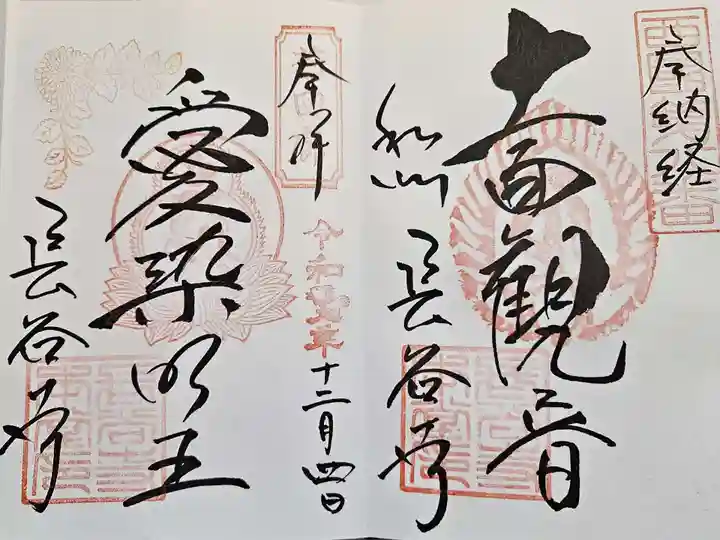 奉納経
十一面観音
和州
長谷寺
奉拝
令和
年
十二月四日
愛染明王
長谷寺